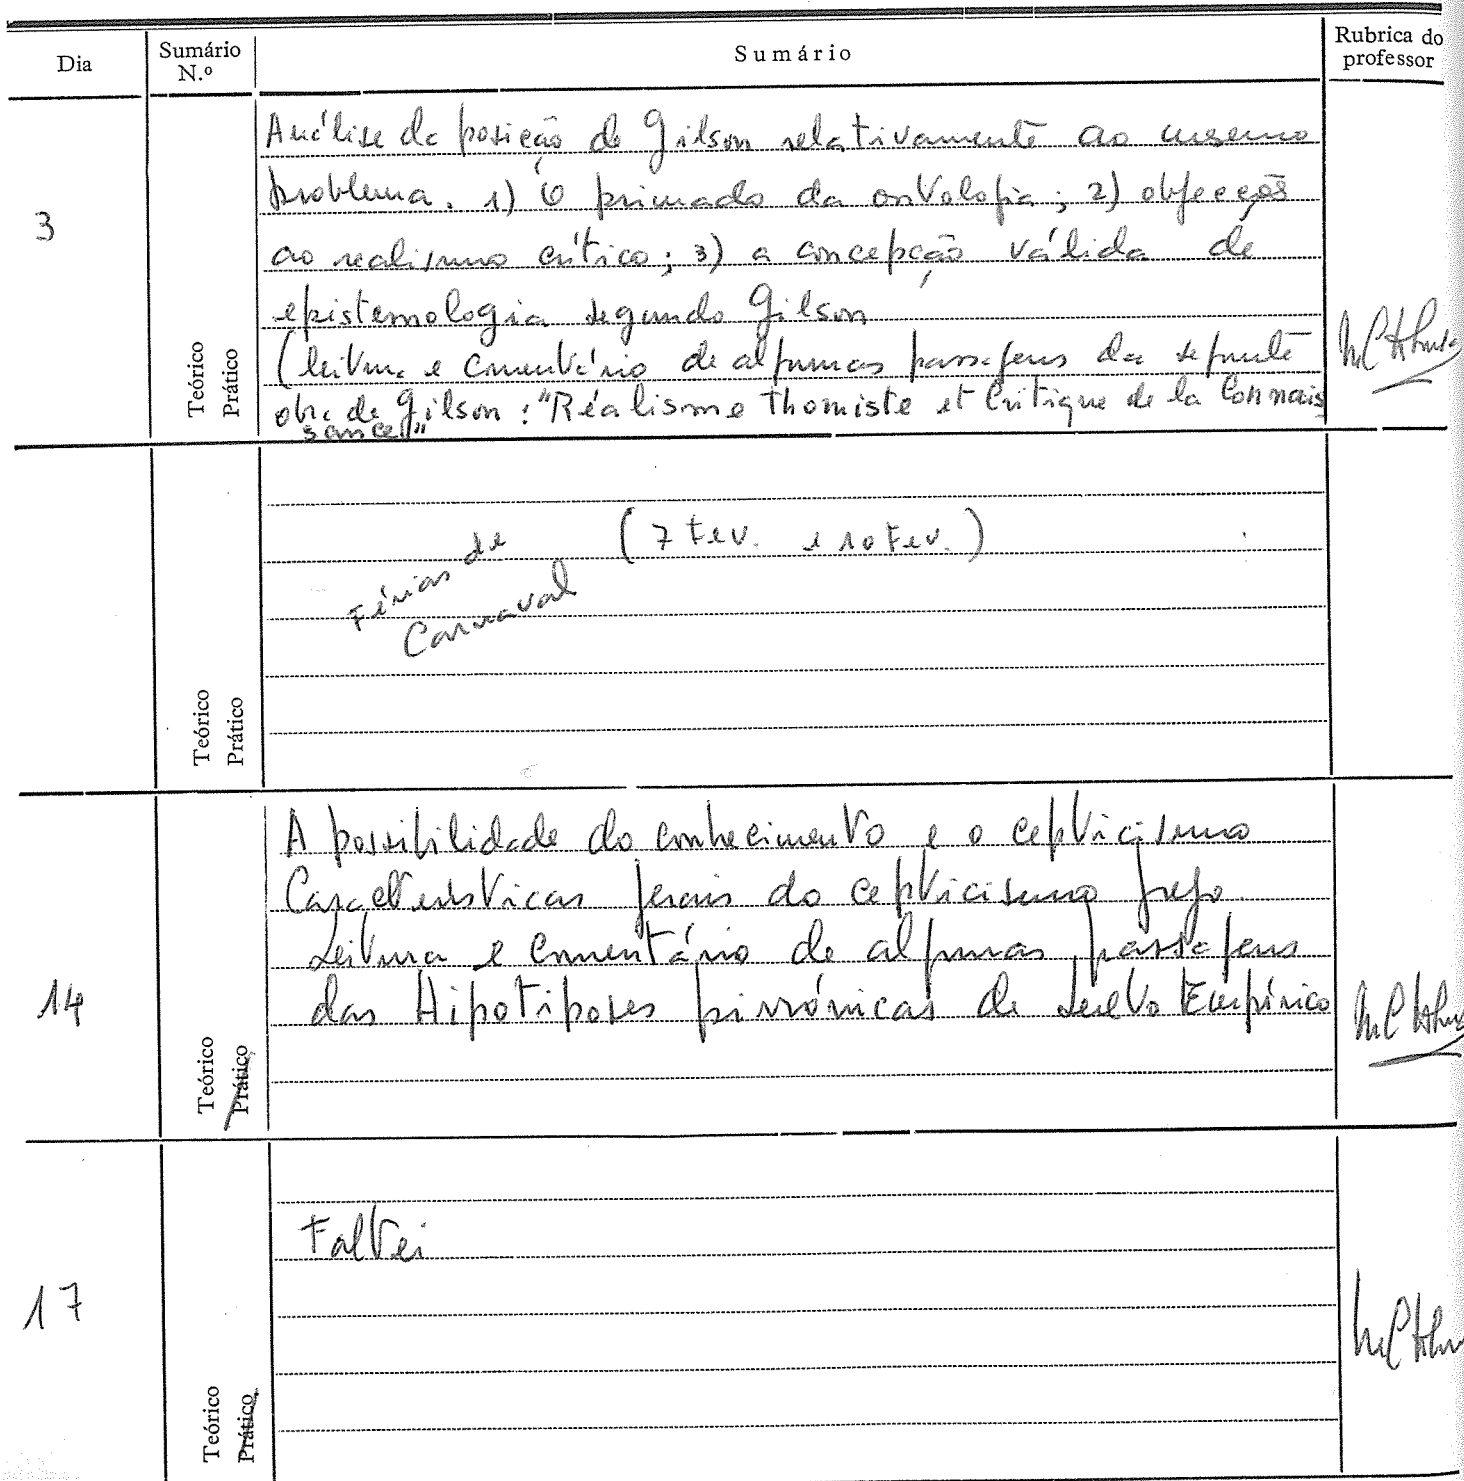 Dia
Sumário N.º
Sumário
Rubrica do professor
3
Teórico
Prático
Análise da posição de Gilson relativamente ao mesmo
problema. 1) O primado da ontologia; 2) objecções
ao realismo crítico; 3) a concepção válida de
epistemologia segundo Gilson
(leitura e comentário de algumas passagens da seguinte
obra de Gilson: "Réalisme thomiste et Critique de la Connais
sance"
Teórico
Prático
Férias de (7 Fev. e 10 Fev.)
Carnaval
14
Teórico
Prático
A possibilidade do conhecimento e o cepticismo
Características gerais do cepticismo grego.
Leitura e comentário de algumas passagens
das Hipotiposes pirrónicas de Sexto Empírico
17
Teórico
Prático
Faltei